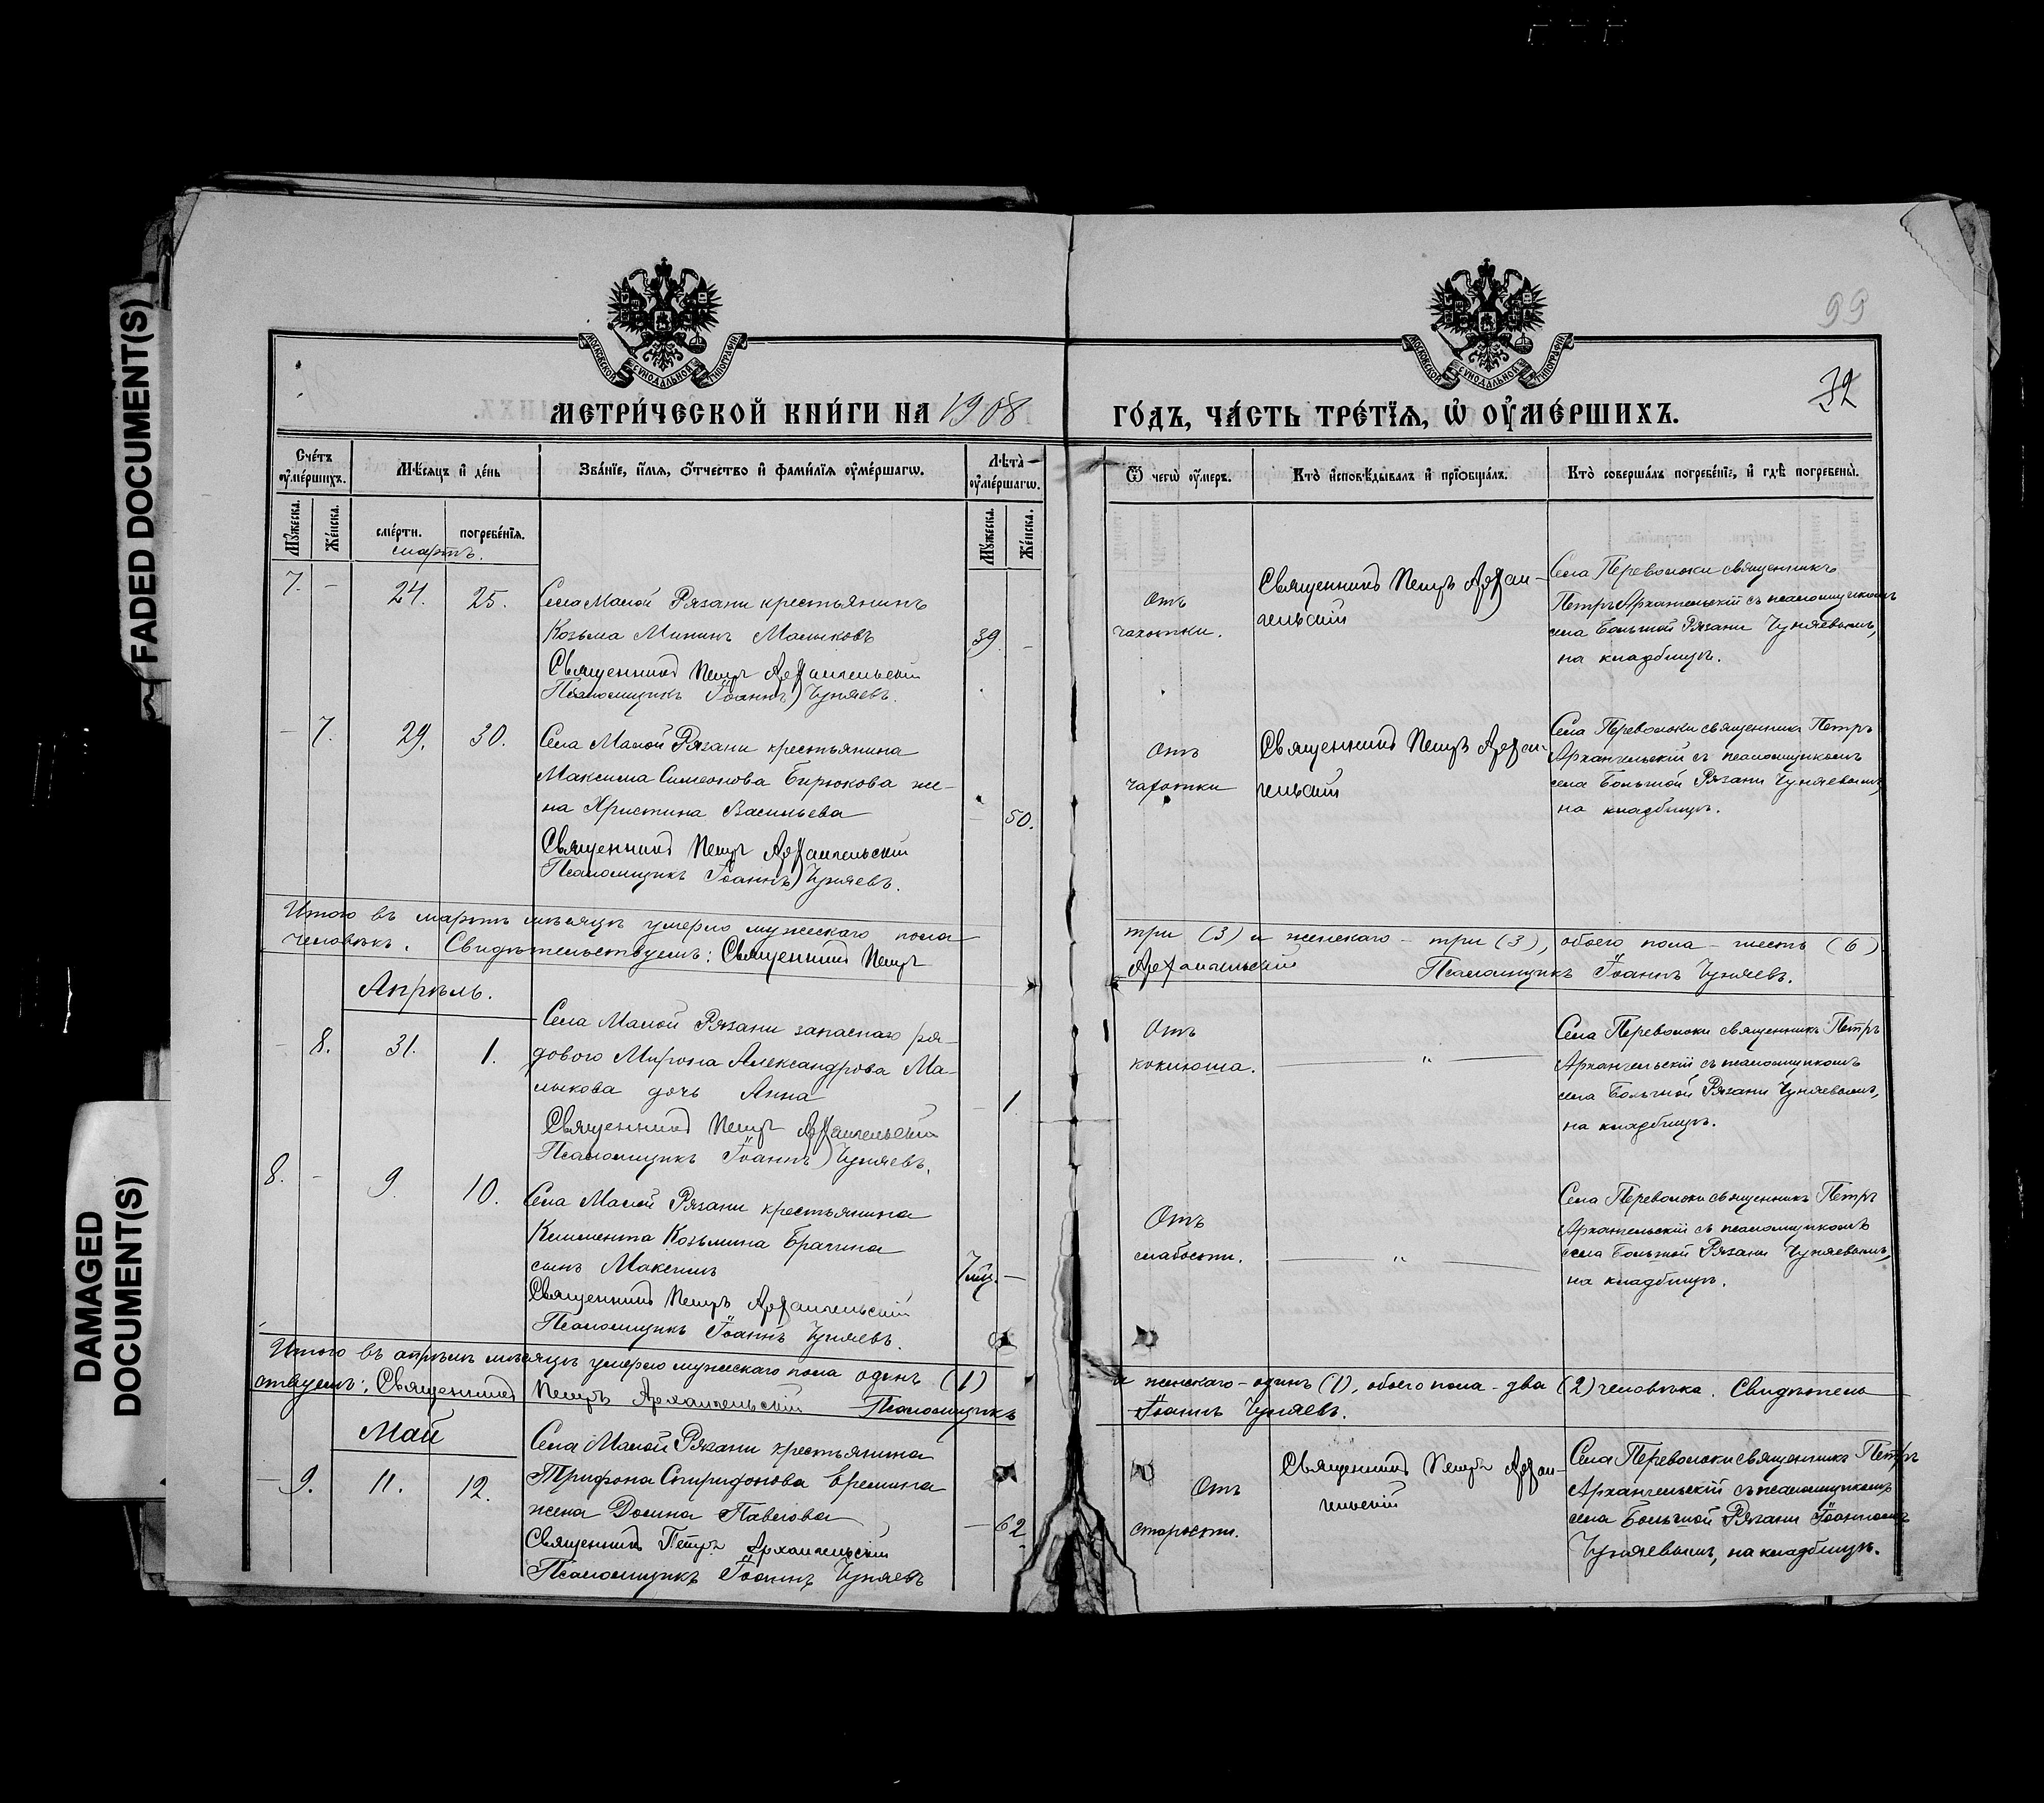 FADED DOCUMENT(S)
DAMAGED
DOCUMENT(S)
99
32
МОСКОВСКОЙ СѴНОДАЛЬНОЙ ТИПОГРАФІИ
МОСКОВСКОЙ СѴНОДАЛЬНОЙ ТИПОГРАФІИ
МЕТРИ́ЧЕСКОЙ КНИ́ГИ НА 1908 ГО́ДЪ, ЧА́СТЬ ТРЕ́ТЇѦ, Ѡ҆ ОУ҆МЕ́РШИХЪ.
Сче́тъ оу҆ме́ршихъ.
Мѣ́сяцъ и҆ де́нь
Зва́нїе, и҆́мѧ, ѻ҆́тчество и҆ фами́лїѧ оу҆ме́ршагѡ.
Лѣ́та̀ оу҆ме́ршагѡ.
Ѿ чегѡ̀ оу҆́меръ.
Кто̀ и҆сповѣ́дывалъ и҆ прїѻбща́лъ.
Кто̀ соверша́лъ погребе́нїе, и҆ гдѣ̀ погребены̀.
Мꙋ́жеска.
Же́нска.
сме́рти.
погребе́нїѧ.
Мꙋ́жеска.
Же́нска.
мартъ.
7. - 24. 25.
Села Малой Рязани крестьянинъ
Козьма Мининъ Малыковъ
39. -
Священникъ Петръ Архангельскій
Псаломщикъ Іоаннъ Чуняевъ.
Отъ
чахотки.
Священникъ Петръ Архан-
гельскій
Села Переволоки священникъ
Петръ Архангельскій съ псаломщикомъ
села Большой Рязани Чуняевымъ,
на кладбищѣ.
- 7. 29. 30.
Села Малой Рязани крестьянина
Максима Симеонова Бирюкова же-
на Христина Васильева
- 50.
Священникъ Петръ Архангельскій
Псаломщикъ Іоаннъ Чуняевъ.
Отъ
чахотки
Священникъ Петръ Архан-
гельскій
Села Переволоки священникъ Петръ
Архангельскій съ псаломщикомъ
села Большой Рязани Чуняевымъ,
на кладбищѣ.
Итого въ мартѣ мѣсяцѣ умерло мужескаго пола три (3) и женскаго - три (3), обоего пола - шесть (6)
человѣкъ. Свидѣтельствуемъ: Священникъ Петръ Архангельскій Псаломщикъ Іоаннъ Чуняевъ.
Апрѣль.
- 8. 31. 1.
Села Малой Рязани запаснаго ря-
дового Мирона Александрова Ма-
лыкова дочь Анна
- 1.
Священникъ Петръ Архангельскій
Псаломщикъ Іоаннъ Чуняевъ.
Отъ
коклюша.
— " —
Села Переволоки священникъ Петръ
Архангельскій съ псаломщикомъ
села Большой Рязани Чуняевымъ,
на кладбищѣ.
8. - 9. 10.
Села Малой Рязани крестьянина
Климента Козьмина Брагина
сынъ Максимъ
7 мѣс. -
Священникъ Петръ Архангельскій
Псаломщикъ Іоаннъ Чуняевъ.
Отъ
слабости.
— " —
Села Переволоки священникъ Петръ
Архангельскій съ псаломщикомъ
села Большой Рязани Чуняевымъ,
на кладбищѣ.
Итого въ апрѣлѣ мѣсяцѣ умерло мужескаго пола одинъ (1) и женскаго - одинъ (1), обоего пола - два (2) человѣка. Свидѣтель
ствуемъ: Священникъ Петръ Архангельскій Псаломщикъ Іоаннъ Чуняевъ.
Май
- 9. 11. 12.
Села Малой Рязани крестьянина
Трифона Спиридонова Еремина
жена Домна Павлова
- 62
Священникъ Петръ Архангельскій
Псаломщикъ Іоаннъ Чуняевъ
Отъ
старости.
Священникъ Петръ Архан-
гельскій
Села Переволоки священникъ Петръ
Архангельскій съ псаломщикомъ
села Большой Рязани Іоанномъ
Чуняевымъ, на кладбищѣ.